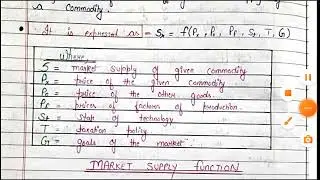 a commodity.
• It is expressed as = Sx = f(Px, Po, Pf, St, T, G)
Where
S = market supply of given commodity
Px = price of the given commodity
Po = price of the other goods
Pf = prices of factors of production.
St = state of technology
T = taxation policy
G = goals of the market
MARKET SUPPLY FUNCTION